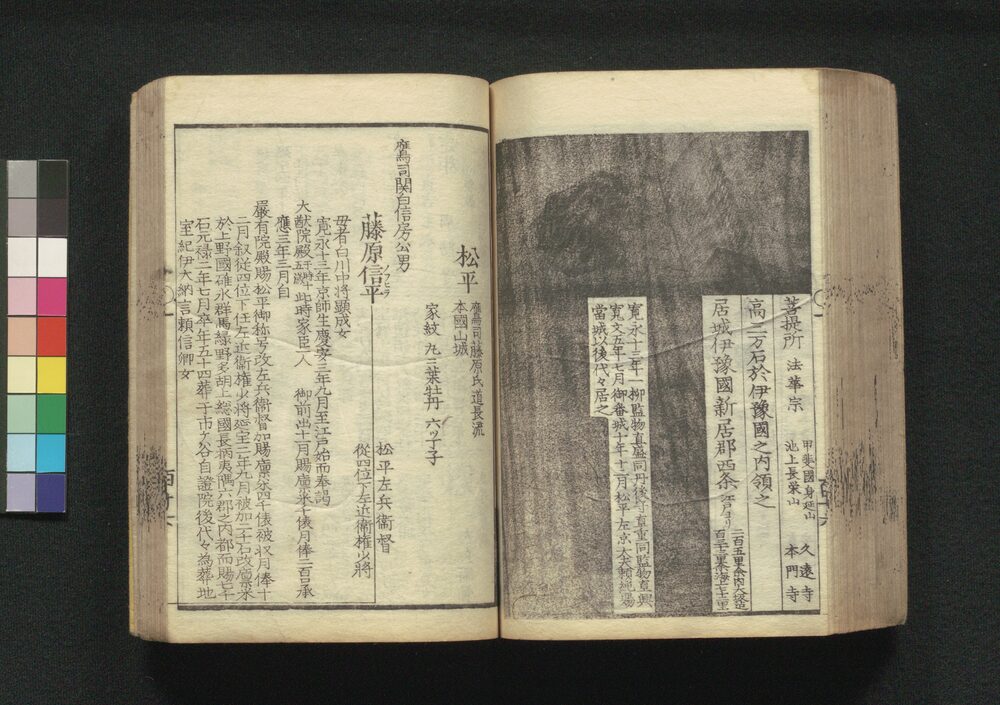 菩提所 法華宗 甲斐國身延山 久遠寺
池上長榮山 本門寺
高三万石於伊豫國之内領之
居城伊豫國新居郡西条 江戸ヨリ
寛永十三年一柳監物直盛同丹後守直重同監物直興
寛文五年七月御番城十年十一月松平左京大夫頼純賜
當城以後代々居之
松平 鷹司藤原氏道長流
本國山城
家紋 丸ニ葉牡丹 六ツ子子
鷹司関白信房公男
藤原信平 ノブヒラ
松平左兵衛督
從四位下左近衛権少将
母者白川中将顕成女
寛永十三年京師生慶安三年九月至江戸始而奉謁
大猷院殿
此時家臣一人 御前出十一月賜廩米千俵月俸二百口承
應三年三月自
嚴有院殿賜松平御称号改左兵衛督加賜廩米四千俵被収月俸十
二月叙從四位下任左近衛権少将延宝二年九月被加二千石改廩米
於上野國碓氷群馬緑野多胡上総國長柄夷隅六郡之内都而賜七千
石元禄二年七月卒年五十四葬于市ヶ谷自證院後代々為葬地
室紀伊大納言頼信卿女